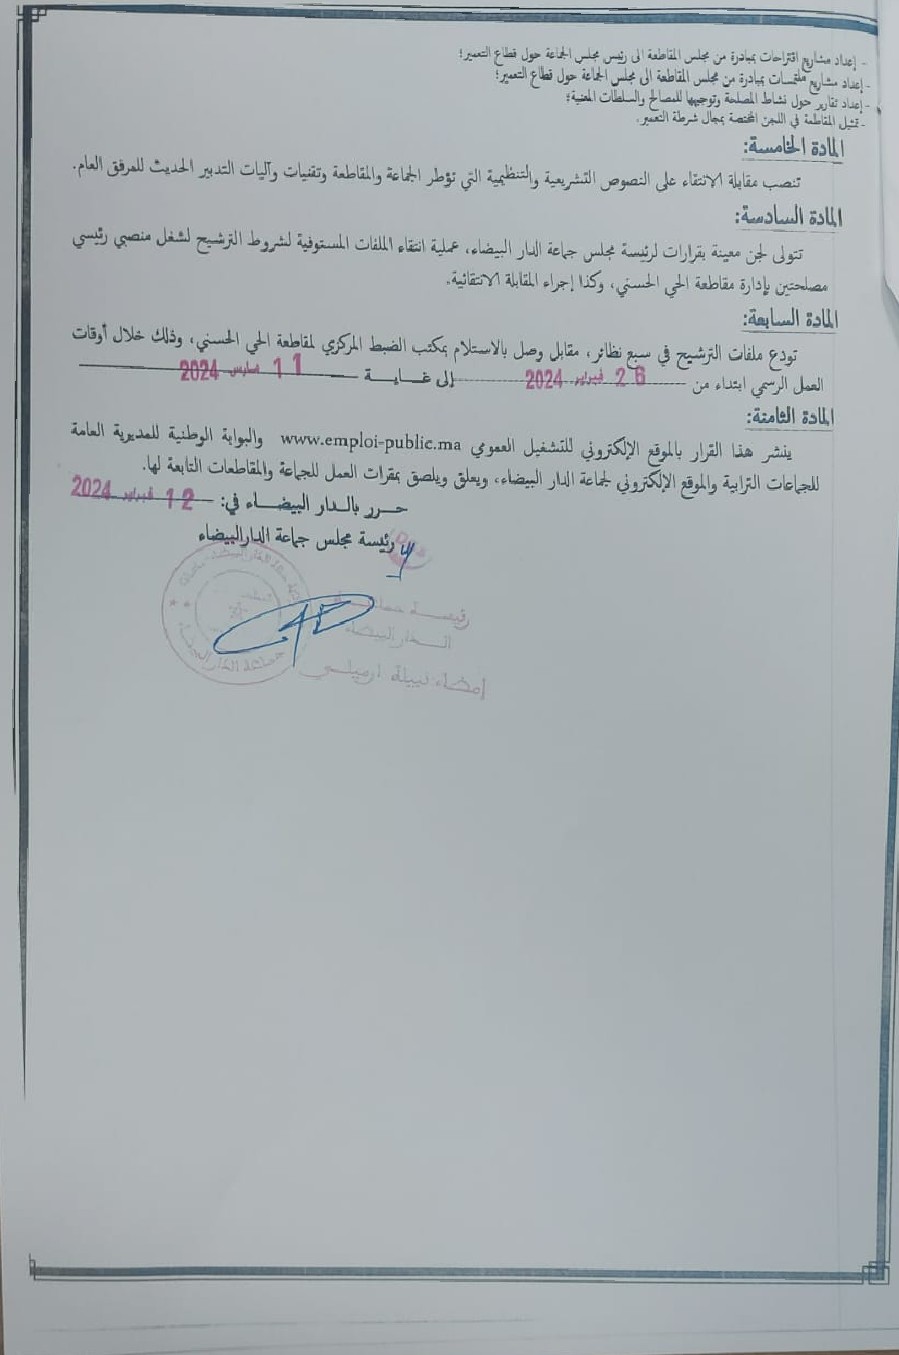 - إعداد مشاريع اقتراحات بمبادرة من مجلس المقاطعة الى رئيس مجلس الجماعة حول قطاع التعمير؛
- إعداد مشاريع ملتمسات بمبادرة من مجلس المقاطعة الى مجلس الجماعة حول قطاع التعمير؛
- إعداد تقارير حول نشاط المصلحة وتوجيهها للمصالح والسلطات المعنية؛
- تمثيل المقاطعة في اللجن المختصة بمجال شرطة التعمير.
المادة الخامسة:
تنصب مقابلة الانتقاء على النصوص التشريعية والتنظيمية التي تؤطر الجماعة والمقاطعة وتقنيات وآليات التدبير الحديث للمرفق العام.
المادة السادسة:
تتولى لجن معينة بقرارات لرئيسة مجلس جماعة الدار البيضاء، عملية انتقاء الملفات المستوفية لشروط الترشيح لشغل منصبي رئيسي
مصلحتين بإدارة مقاطعة الحي الحسني، وكذا إجراء المقابلة الانتقائية.
المادة السابعة:
تودع ملفات الترشيح في سبع نظائر، مقابل وصل بالاستلام بمكتب الضبط المركزي لمقاطعة الحي الحسني، وذلك خلال أوقات
العمل الرسمي ابتداء من 26 فبراير 2024 إلى غـــايـــة 11 مارس 2024
المادة الثامنة:
ينشر هذا القرار بالموقع الإلكتروني للتشغيل العمومي www.emploi-public.ma والبوابة الوطنية للمديرية العامة
للجماعات الترابية والموقع الإلكتروني لجماعة الدار البيضاء، ويعلق ويلصق بمقرات العمل للجماعة والمقاطعات التابعة لها.
حـــرر بالـدار البيضـــاء في: 12 فبراير 2024
رئيسة مجلس جماعة الدارالبيضاء
رئيسة جماعة
الدار البيضاء
إمضاء نبيلة ارميلي
جماعة الدار البيضاء